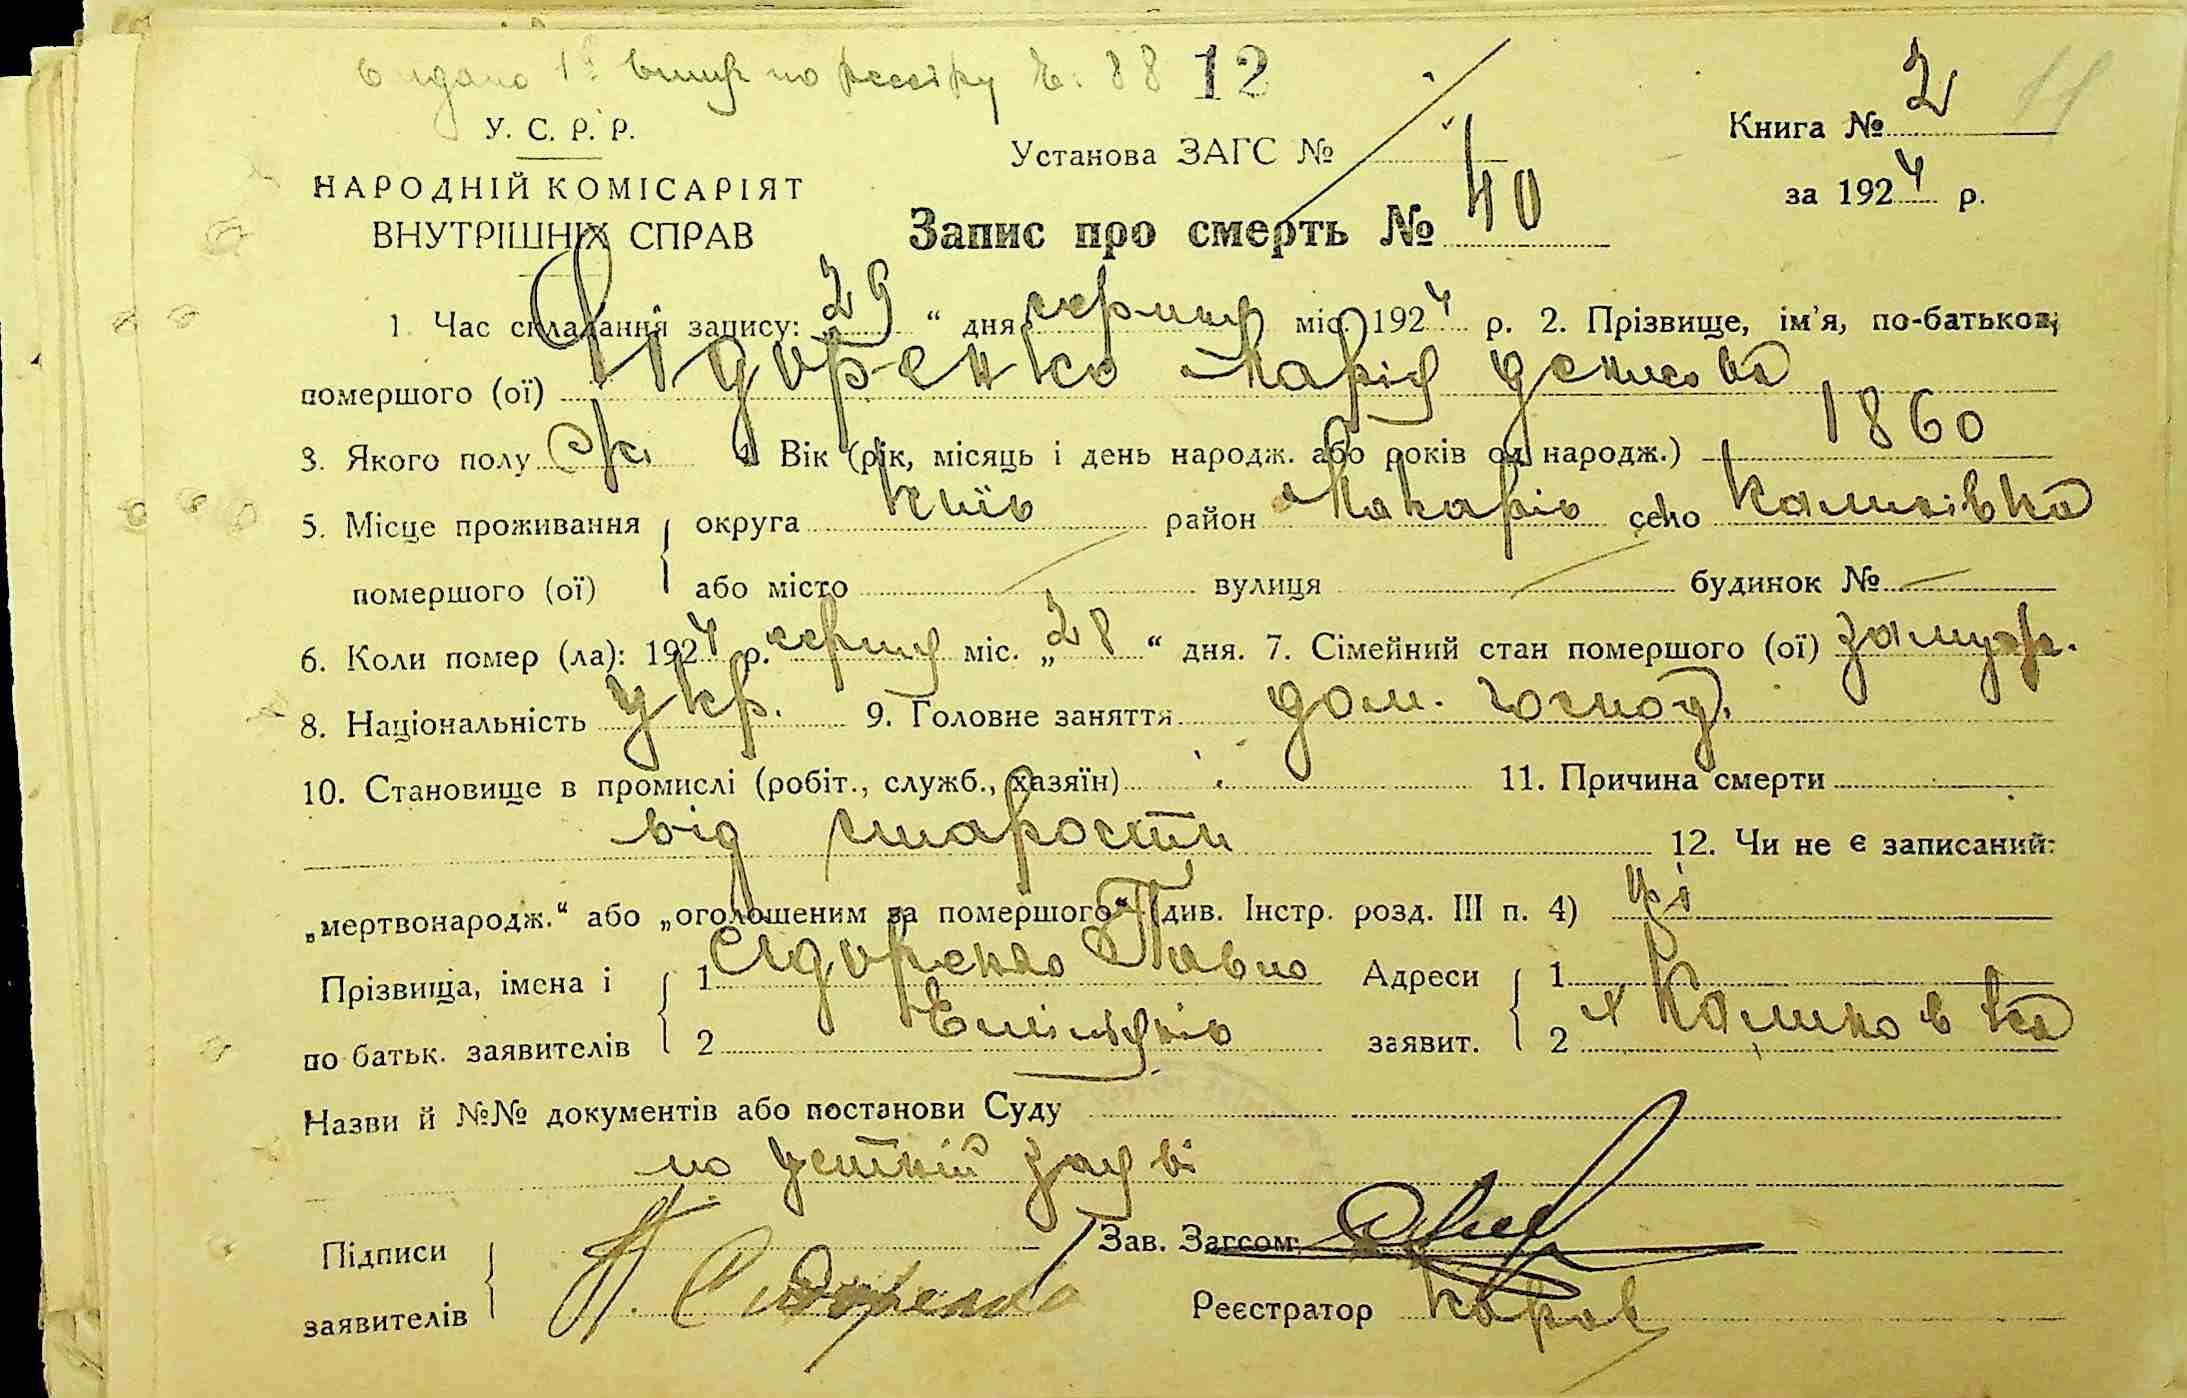 видано 1й витяг по реєстру №: 88 12
Книга № 2 11
У. С. Р. Р.
Установа ЗАГС №
за 1924 р.
НАРОДНІЙ КОМІСАРІЯТ
ВНУТРІШНІХ СПРАВ
Запис про смерть № 40
1. Час складання запису: „29“ дня серпня міс. 1924 р. 2. Прізвище, ім'я, по-батькові
помершого (ої) Сідоренко Марія Денисова
3. Якого полу ж. 4 Вік (рік, місяць і день народж. або років од народж.) 1860
5. Місце проживання округа Київ район Макарів село Калинівка
помершого (ої) або місто вулиця будинок №
6. Коли помер (ла): 1924 р. серпня міс. „28“ дня. 7. Сімейний стан помершого (ої) замуж.
8. Національність укр. 9. Головне заняття дом. господ.
10. Становище в промислі (робіт., служб., хазяїн) 11. Причина смерти
від старости 12. Чи не є записаний:
„мертвонародж.“ або „оголошеним за помершого“ (див. Інстр. розд. III п. 4) ні
Прізвища, імена і 1 Сідоренко Павло Адреси 1
по батьк. заявителів 2 заявит. 2 Калиновка
Назви й №№ документів або постанови Суду
по устній заяві
Підписи Зав. Загсом:
заявителів П. Сидоренко Реєстратор